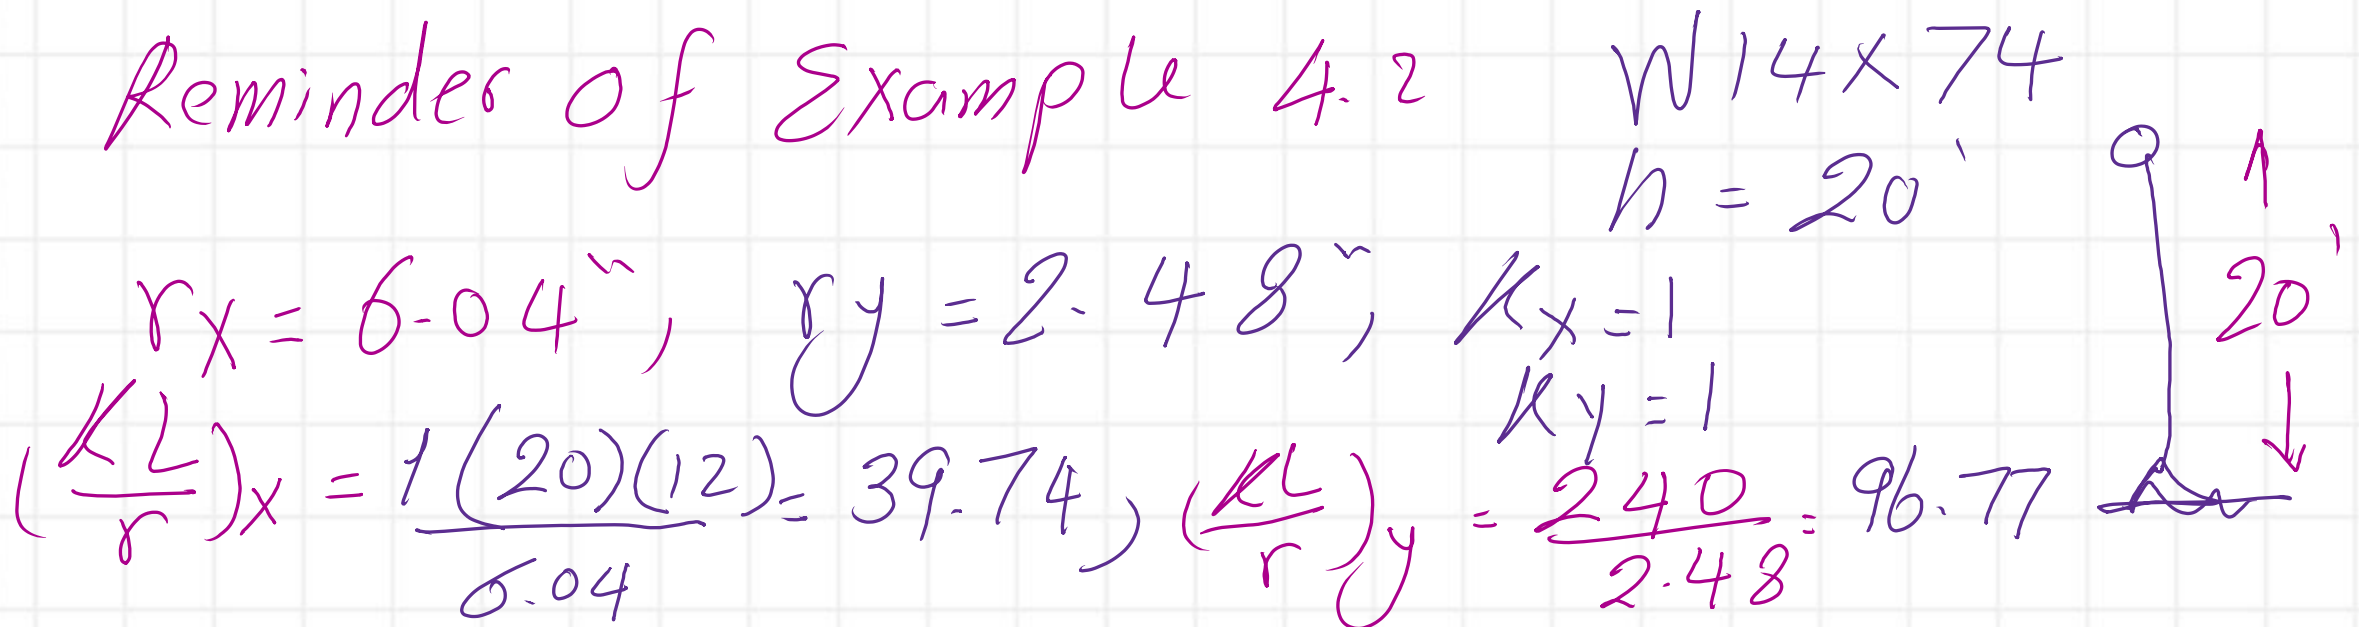 Reminder of Example 4.2 W14x74
h = 20'
rx = 6.04", ry = 2.48", Kx = 1
Ky = 1
20'
(KL/r)x = 1(20)(12)/6.04 = 39.74, (KL/r)y = 240/2.48 = 96.77